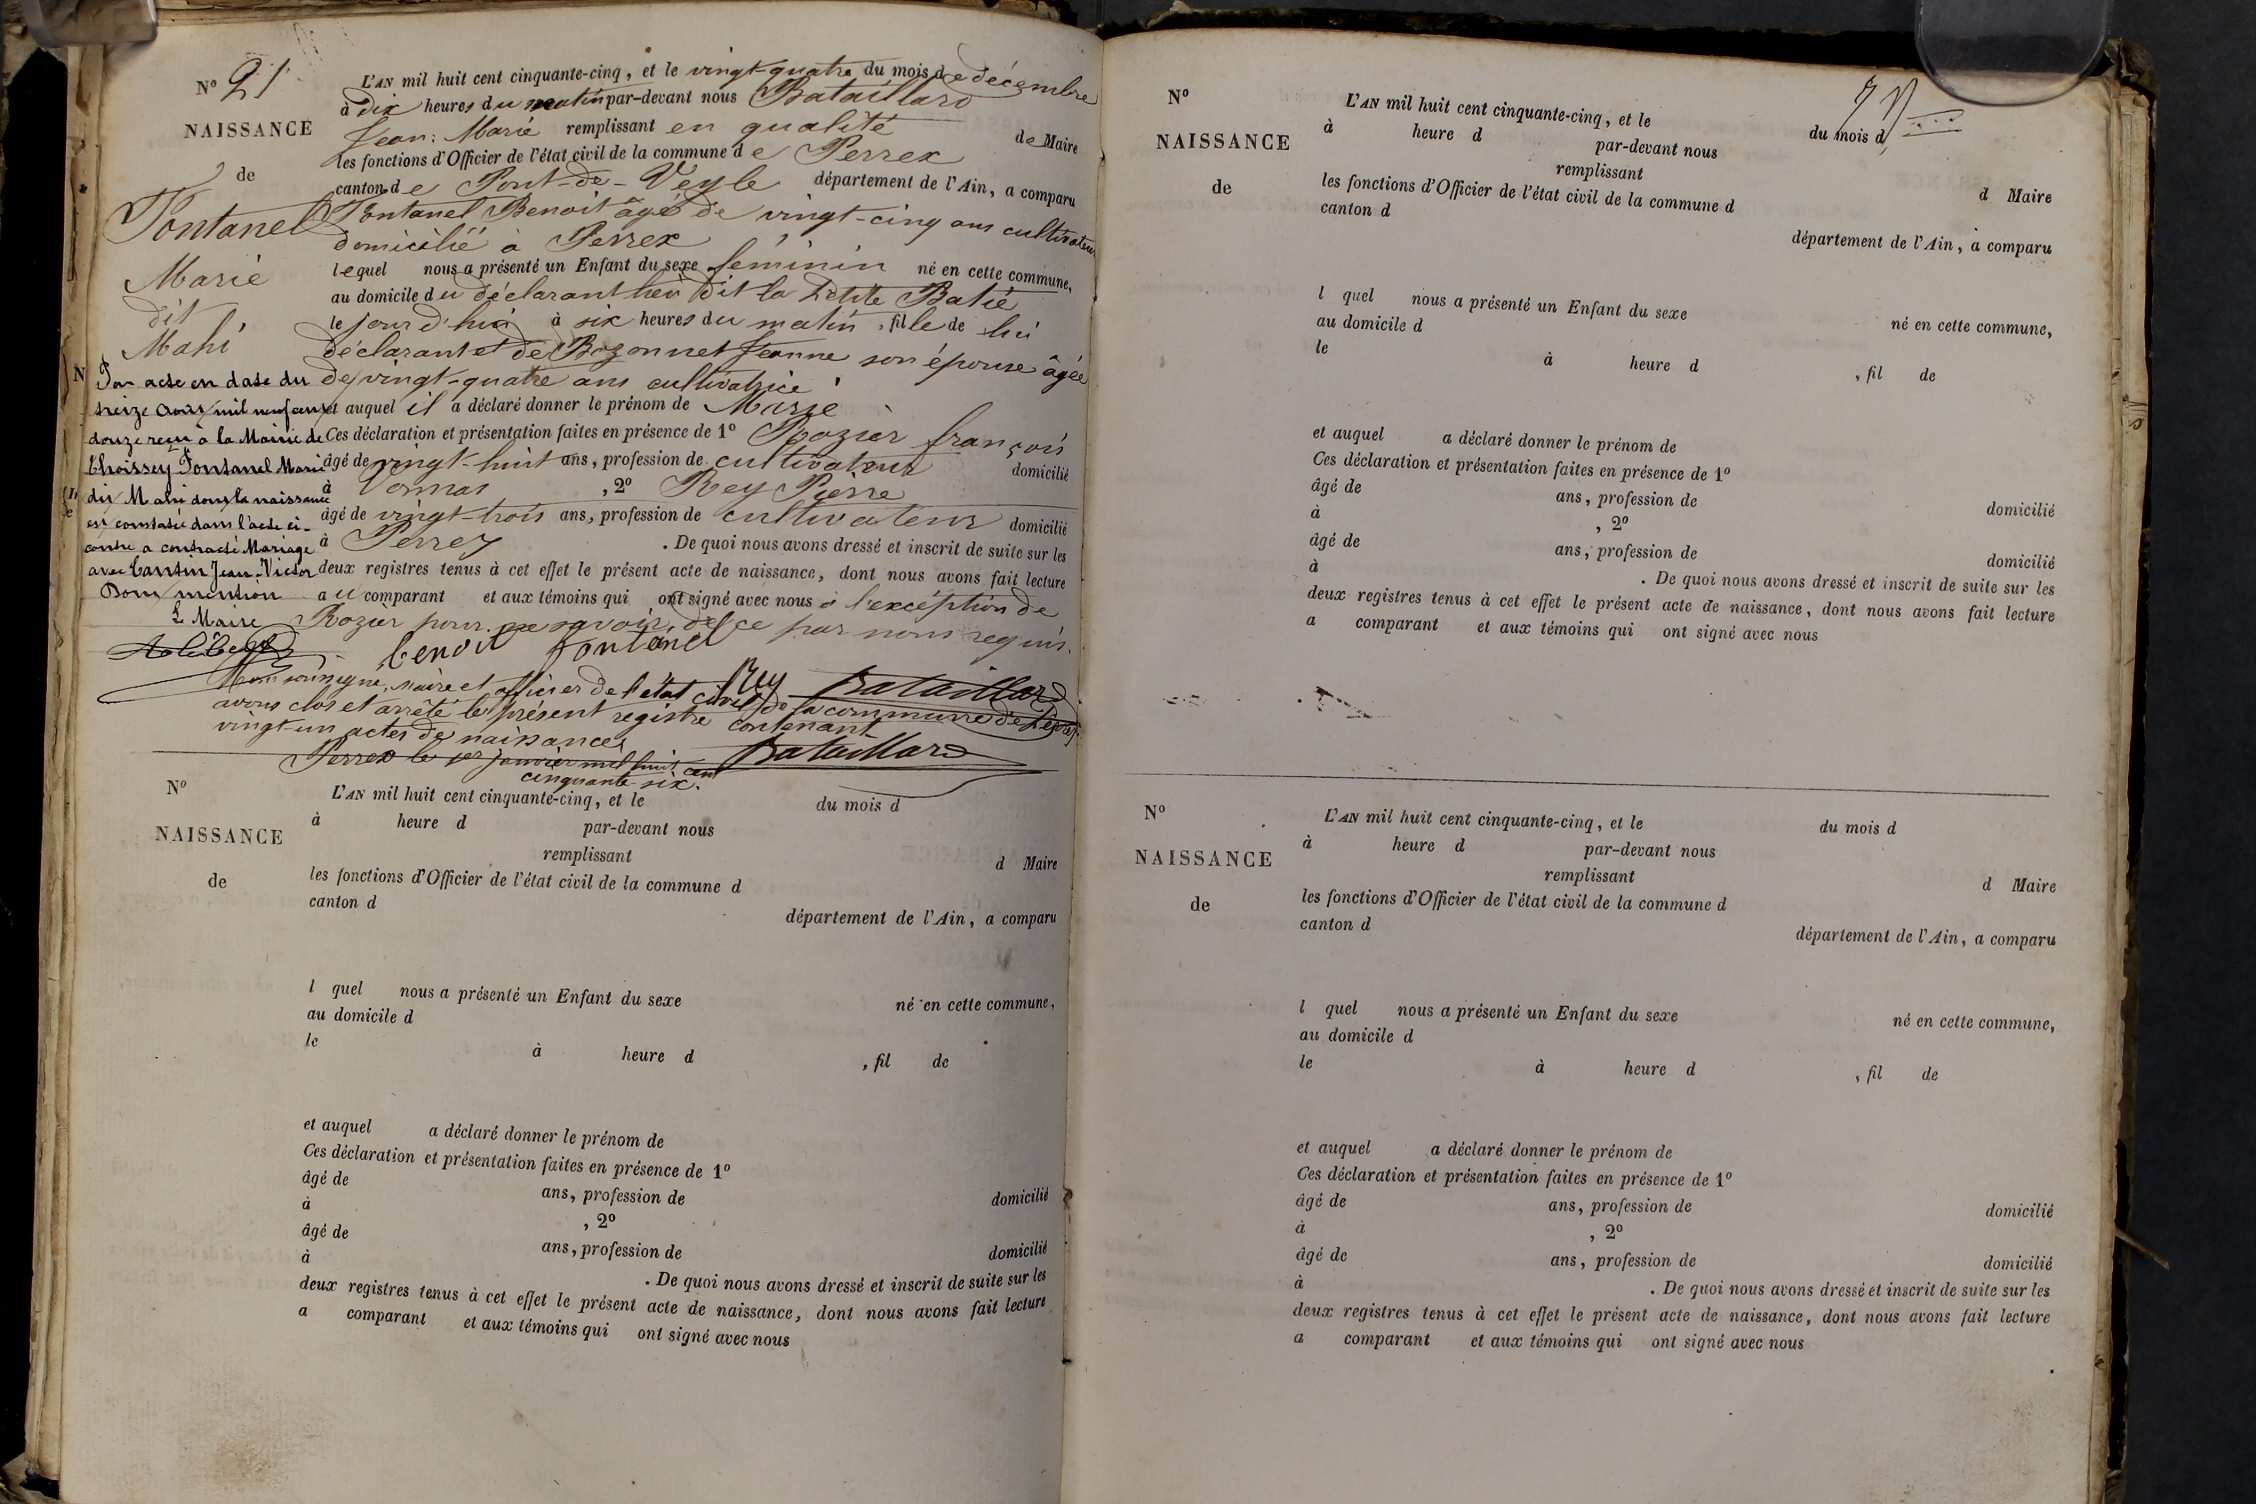 N° 21
NAISSANCE
de
Fontanel
Marie
dit
Mahi
Par acte en date du
treize Août mil neuf cent
douze reçu à la Mairie de
Thoissey Fontanel Marie
dit Mahi dont la naissance
est constatée dans l'acte ci-
contre a contracté Mariage
avec Cantin Jean-Victor
Dont mention
L Maire
L'AN mil huit cent cinquante-cinq, et le vingt-quatre du mois de décembre
à dix heures du matin par-devant nous Bataillard
Jean-Marie remplissant en qualité de Maire
les fonctions d'Officier de l'état civil de la commune de Perrex
canton de Pont-de-Veyle département de l'Ain, a comparu
Fontanel Benoit âgé de vingt-cinq ans cultivateur
domicilié à Perrex
lequel nous a présenté un Enfant du sexe féminin né en cette commune,
au domicile du déclarant lieu dit la Petite Batié
le jour d'hui à six heures du matin, fille de lui
déclarant et de Bozonnet Jeanne son épouse âgée
de vingt-quatre ans cultivatrice
et auquel il a déclaré donner le prénom de Marie
Ces déclaration et présentation faites en présence de 1° Rozier françois
âgé de vingt-huit ans, profession de cultivateur domicilié
à Vonnas, 2° Rey Pierre
âgé de vingt-trois ans, profession de cultivateur domicilié
à Perrex. De quoi nous avons dressé et inscrit de suite sur les
deux registres tenus à cet effet le présent acte de naissance, dont nous avons fait lecture
au comparant et aux témoins qui ont signé avec nous à l'exception de
Rozier pour ne savoir, de ce par nous requis.
benoit fontanel
Rey Bataillard
Nous soussigné, maire et officier de l'état civil de la commune de Perrex
avons clos et arrêté le présent registre contenant
vingt-un actes de naissances
Perrex le 1er janvier mil huit cent
cinquante-six.
Bataillard
N°
NAISSANCE
de
L'AN mil huit cent cinquante-cinq, et le du mois d
à heure d par-devant nous
remplissant d Maire
les fonctions d'Officier de l'état civil de la commune d
canton d département de l'Ain, a comparu
l quel nous a présenté un Enfant du sexe né en cette commune,
au domicile d
le à heure d , fil de
et auquel a déclaré donner le prénom de
Ces déclaration et présentation faites en présence de 1°
âgé de ans, profession de domicilié
à , 2°
âgé de ans, profession de domicilié
à . De quoi nous avons dressé et inscrit de suite sur les
deux registres tenus à cet effet le présent acte de naissance, dont nous avons fait lecture
a comparant et aux témoins qui ont signé avec nous
N°
NAISSANCE
de
L'AN mil huit cent cinquante-cinq, et le du mois d
à heure d par-devant nous
remplissant d Maire
les fonctions d'Officier de l'état civil de la commune d
canton d département de l'Ain, a comparu
l quel nous a présenté un Enfant du sexe né en cette commune,
au domicile d
le à heure d , fil de
et auquel a déclaré donner le prénom de
Ces déclaration et présentation faites en présence de 1°
âgé de ans, profession de domicilié
à , 2°
âgé de ans, profession de domicilié
à . De quoi nous avons dressé et inscrit de suite sur les
deux registres tenus à cet effet le présent acte de naissance, dont nous avons fait lecture
a comparant et aux témoins qui ont signé avec nous
N°
NAISSANCE
de
L'AN mil huit cent cinquante-cinq, et le du mois d
à heure d par-devant nous
remplissant d Maire
les fonctions d'Officier de l'état civil de la commune d
canton d département de l'Ain, a comparu
l quel nous a présenté un Enfant du sexe né en cette commune,
au domicile d
le à heure d , fil de
et auquel a déclaré donner le prénom de
Ces déclaration et présentation faites en présence de 1°
âgé de ans, profession de domicilié
à , 2°
âgé de ans, profession de domicilié
à . De quoi nous avons dressé et inscrit de suite sur les
deux registres tenus à cet effet le présent acte de naissance, dont nous avons fait lecture
a comparant et aux témoins qui ont signé avec nous